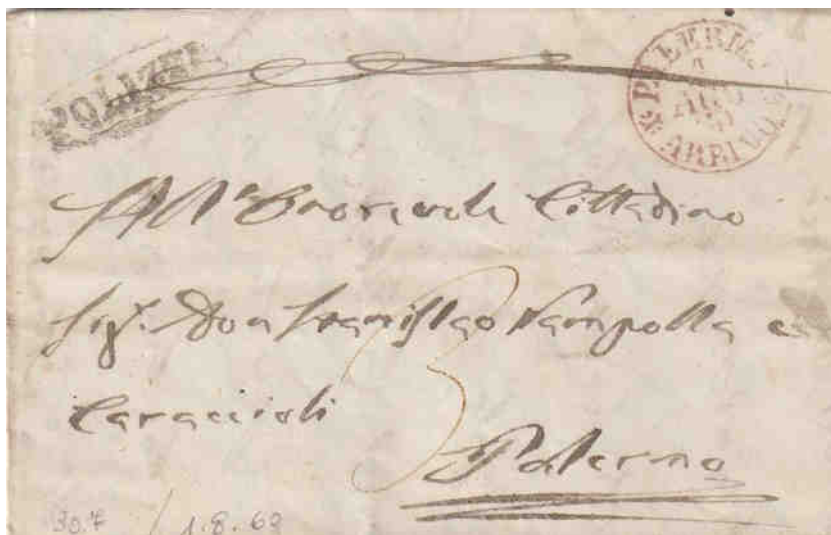 POLIZZI
PALERMO
1
AGO
ARRIVO
All'Onorevole Cittadino
Sig. Don Stanislao Rampolla e
Caraccioli
3
Palermo
30.7 / 1.8.60